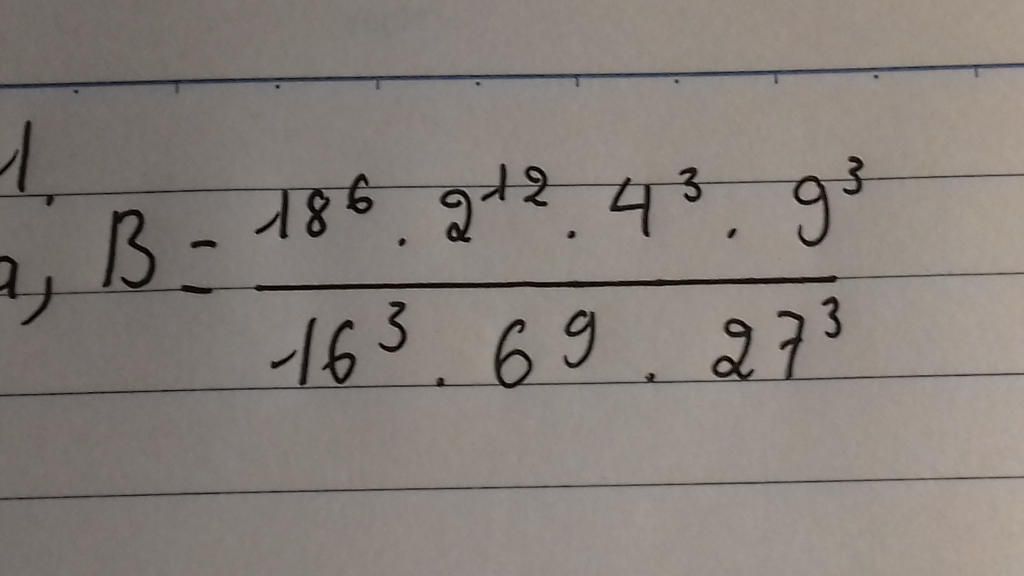 1.
a, B = 18⁶ . 2¹² . 4³ . 9³
16³ . 6⁹ . 27³